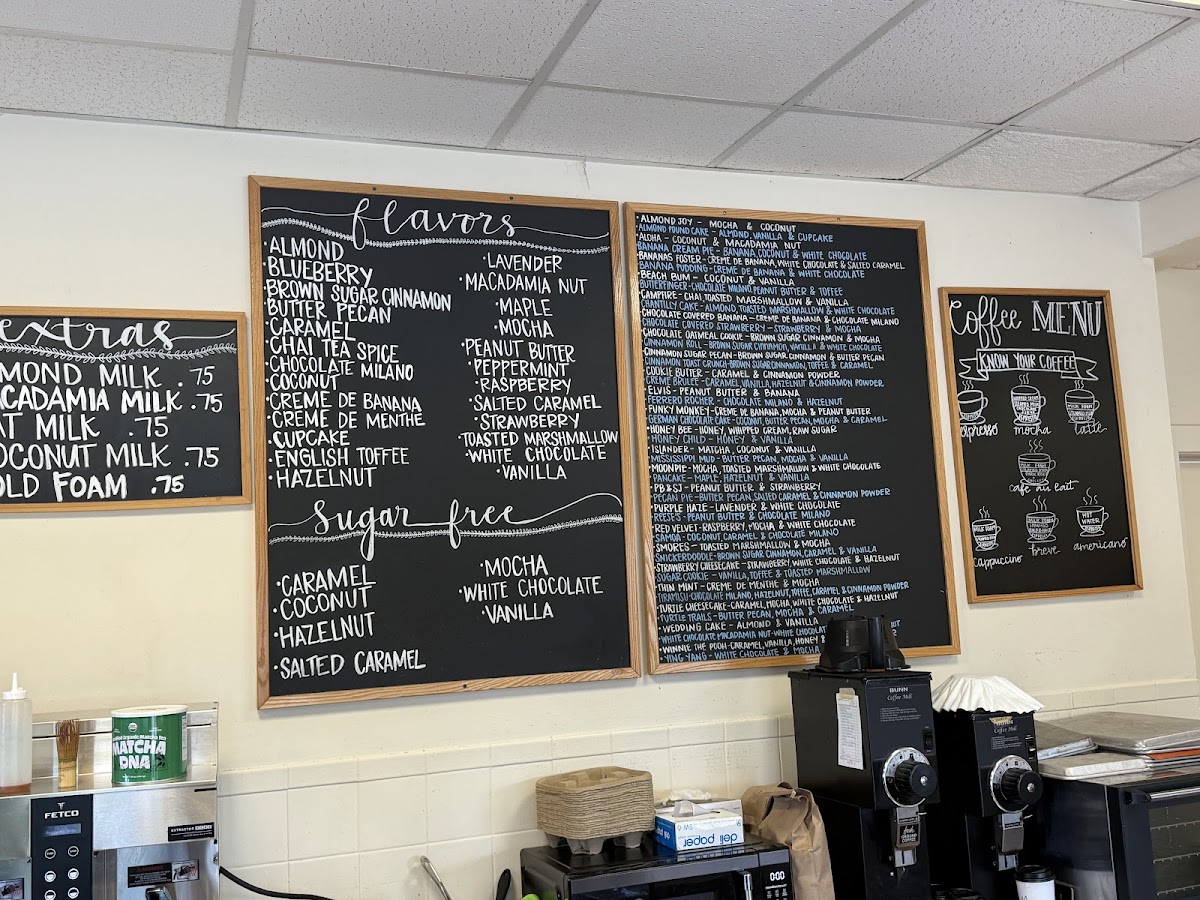 extras
MOND MILK .75
CADAMIA MILK .75
AT MILK .75
OCONUT MILK .75
OLD FOAM .75
flavors
·ALMOND
·BLUEBERRY
·BROWN SUGAR CINNAMON
·BUTTER PECAN
·CARAMEL
·CHAI TEA SPICE
·CHOCOLATE MILANO
·COCONUT
·CREME DE BANANA
·CREME DE MENTHE
·CUPCAKE
·ENGLISH TOFFEE
·HAZELNUT
·LAVENDER
·MACADAMIA NUT
·MAPLE
·MOCHA
·PEANUT BUTTER
·PEPPERMINT
·RASPBERRY
·SALTED CARAMEL
·STRAWBERRY
·TOASTED MARSHMALLOW
·WHITE CHOCOLATE
·VANILLA
Sugar free
·CARAMEL
·COCONUT
·HAZELNUT
·SALTED CARAMEL
·MOCHA
·WHITE CHOCOLATE
·VANILLA
·ALMOND JOY - MOCHA & COCONUT
·ALMOND POUND CAKE - ALMOND, VANILLA & CUPCAKE
·ALOHA - COCONUT & MACADAMIA NUT
·BANANA CREAM PIE - BANANA, COCONUT & WHITE CHOCOLATE
·BANANAS FOSTER - CREME DE BANANA, WHITE CHOCOLATE & SALTED CARAMEL
·BANANA PUDDING - CREME DE BANANA & WHITE CHOCOLATE
·BEACH BUM - COCONUT & VANILLA
·BUTTERFINGER - CHOCOLATE MILANO, PEANUT BUTTER & TOFFEE
·CAMPFIRE - CHAI, TOASTED MARSHMALLOW & VANILLA
·CHANTILLY CAKE - ALMOND, TOASTED MARSHMALLOW & WHITE CHOCOLATE
·CHOCOLATE COVERED BANANA - CREME DE BANANA & CHOCOLATE MILANO
·CHOCOLATE COVERED STRAWBERRY - STRAWBERRY & MOCHA
·CHOCOLATE OATMEAL COOKIE - BROWN SUGAR CINNAMON & MOCHA
·CINNAMON ROLL - BROWN SUGAR CINNAMON, VANILLA & WHITE CHOCOLATE
·CINNAMON SUGAR PECAN - BROWN SUGAR CINNAMON & BUTTER PECAN
·CINNAMON TOAST CRUNCH - BROWN SUGAR CINNAMON, TOFFEE & CARAMEL
·COOKIE BUTTER - CARAMEL & CINNAMON POWDER
·CREME BRULEE - CARAMEL, VANILLA, HAZELNUT & CINNAMON POWDER
·ELVIS - PEANUT BUTTER & BANANA
·FERRERO ROCHER - CHOCOLATE MILANO & HAZELNUT
·FUNKY MONKEY - CREME DE BANANA, MOCHA & PEANUT BUTTER
·GERMAN CHOCOLATE CAKE - COCONUT, BUTTER PECAN, MOCHA & CARAMEL
·HONEY BEE - HONEY, WHIPPED CREAM, RAW SUGAR
·HONEY CHILD - HONEY & VANILLA
·ISLANDER - MATCHA, COCONUT & VANILLA
·MISSISSIPPI MUD - BUTTER PECAN, MOCHA & VANILLA
·MOON PIE - MOCHA, TOASTED MARSHMALLOW & WHITE CHOCOLATE
·PANCAKE - MAPLE, HAZELNUT & VANILLA
·PB&SJ - PEANUT BUTTER & STRAWBERRY
·PECAN PIE - BUTTER PECAN, SALTED CARAMEL & CINNAMON POWDER
·PURPLE HAZE - LAVENDER & WHITE CHOCOLATE
·REESE'S - PEANUT BUTTER & CHOCOLATE MILANO
·RED VELVET - RASPBERRY, MOCHA & WHITE CHOCOLATE
·SAMOA - COCONUT, CARAMEL & CHOCOLATE MILANO
·SMORES - TOASTED MARSHMALLOW & MOCHA
·SNICKERDOODLE - BROWN SUGAR CINNAMON, CARAMEL & VANILLA
·STRAWBERRY CHEESECAKE - STRAWBERRY, WHITE CHOCOLATE & HAZELNUT
·SUGAR COOKIE - VANILLA, TOFFEE & TOASTED MARSHMALLOW
·THIN MINT - CREME DE MENTHE & MOCHA
·TIRAMISU - CHOCOLATE MILANO, HAZELNUT, TOFFEE, CARAMEL & CINNAMON POWDER
·TURTLE CHEESECAKE - CARAMEL, MOCHA, WHITE CHOCOLATE & HAZELNUT
·TURTLE TRAILS - BUTTER PECAN, MOCHA & CARAMEL
·WEDDING CAKE - ALMOND & VANILLA
·WHITE CHOCOLATE MACADAMIA NUT - WHITE CHOCOLAT UT
·WINNIE THE POOH - CARAMEL, VANILLA, HONEY &
·YING YANG - WHITE CHOCOLATE & MOCHA
Coffee MENU
KNOW YOUR COFFEE
espresso
mocha
latte
cafe au lait
cappuccino
breve
HOT WATER
americano
MATCHA DNA
FETCO
EXTRACTOR
deli paper
0:00
BUNN
Coffee Mill
Coffee Mill